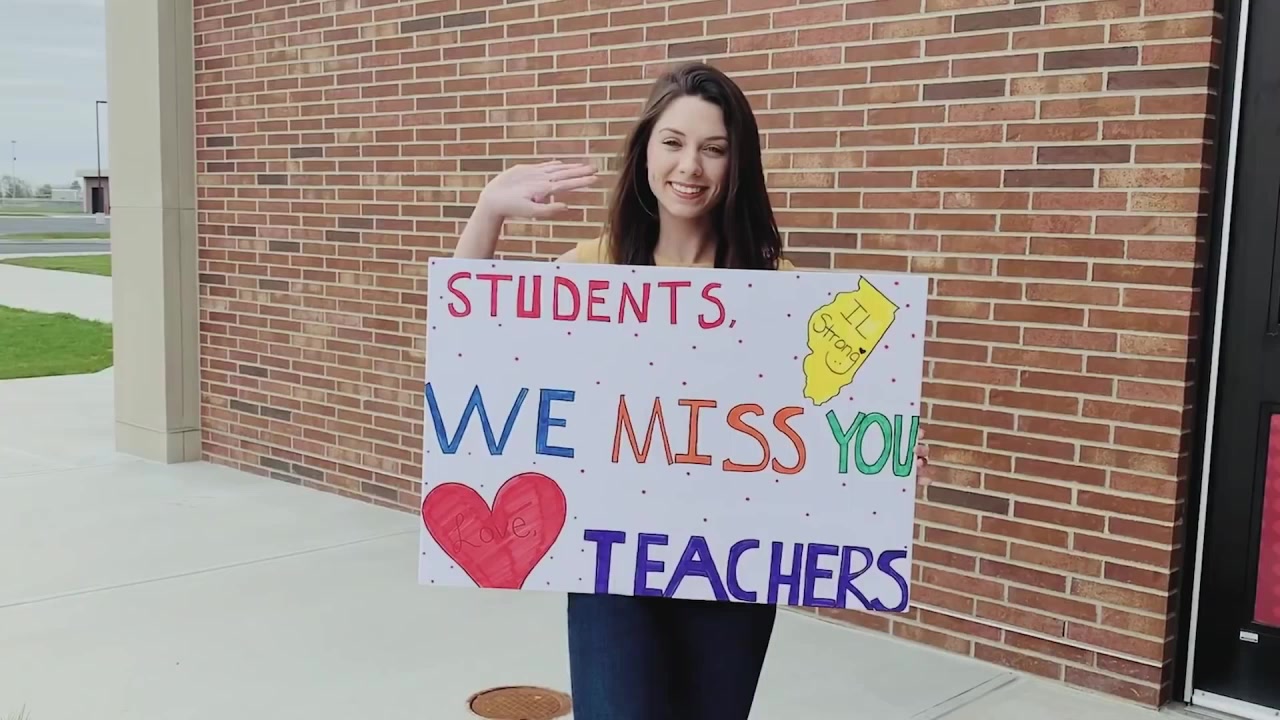 STUDENTS,
IL
Strong
WE MISS YOU
Love,
TEACHERS